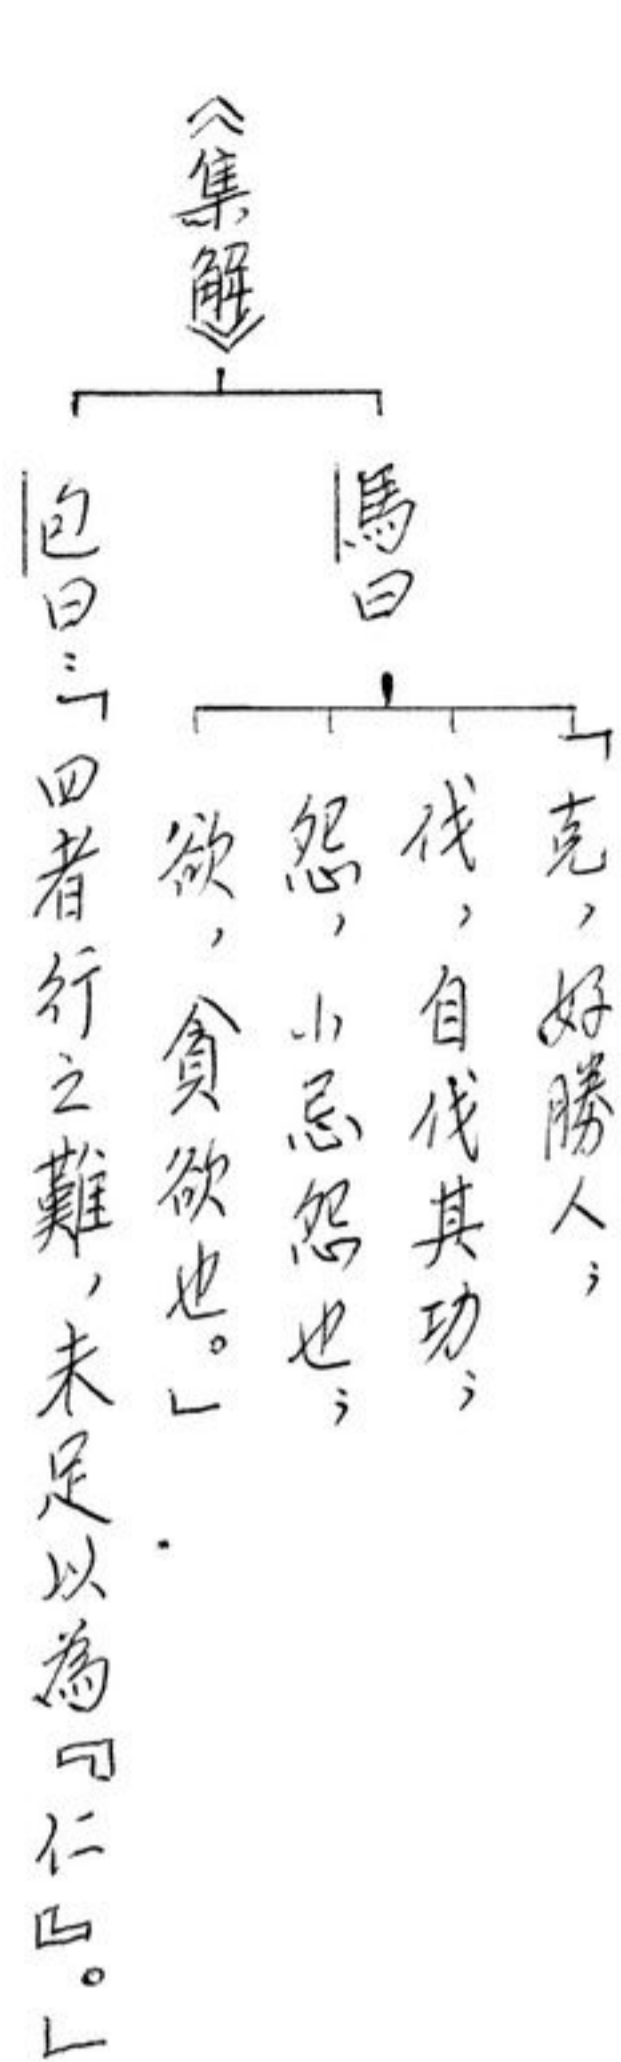 《集解》
馬曰
「克，好勝人；
伐，自伐其功；
怨，小忌怨也；
欲，貪欲也。」
包曰：「四者行之難，未足以為『仁』。」